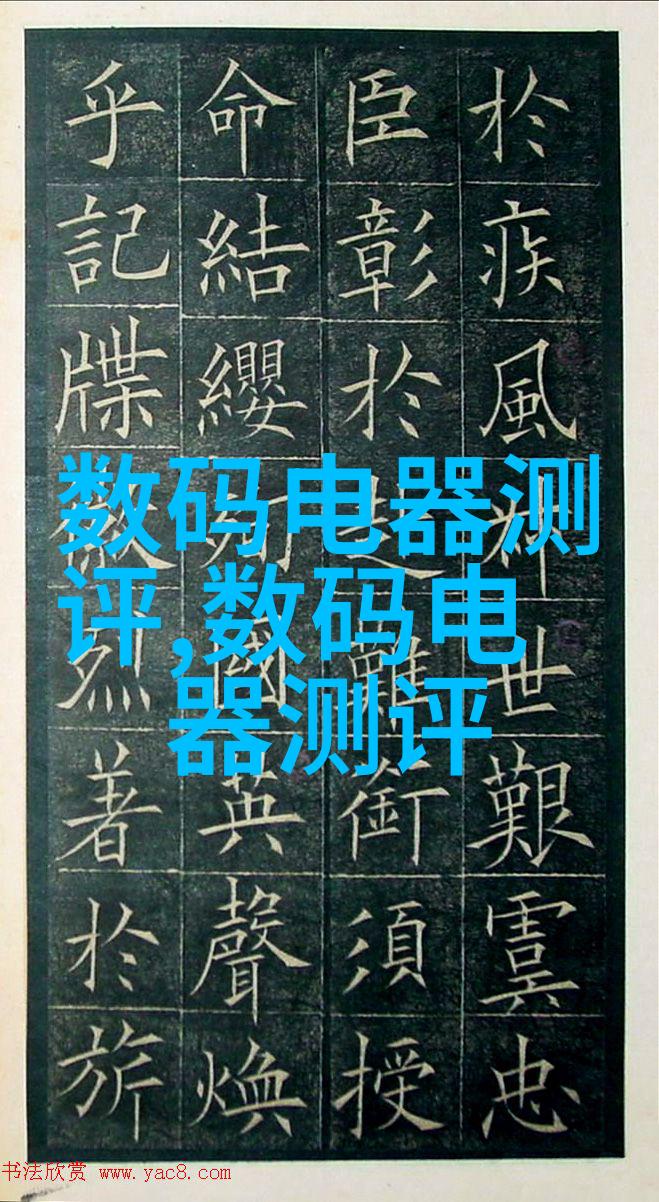 於疾風世艱虞忠
臣彰於難銜須授
命結纓國英聲煥
乎記牒烈著於旂
数码电器测
评,数码电
器测评
书法欣赏 www.yac8.com